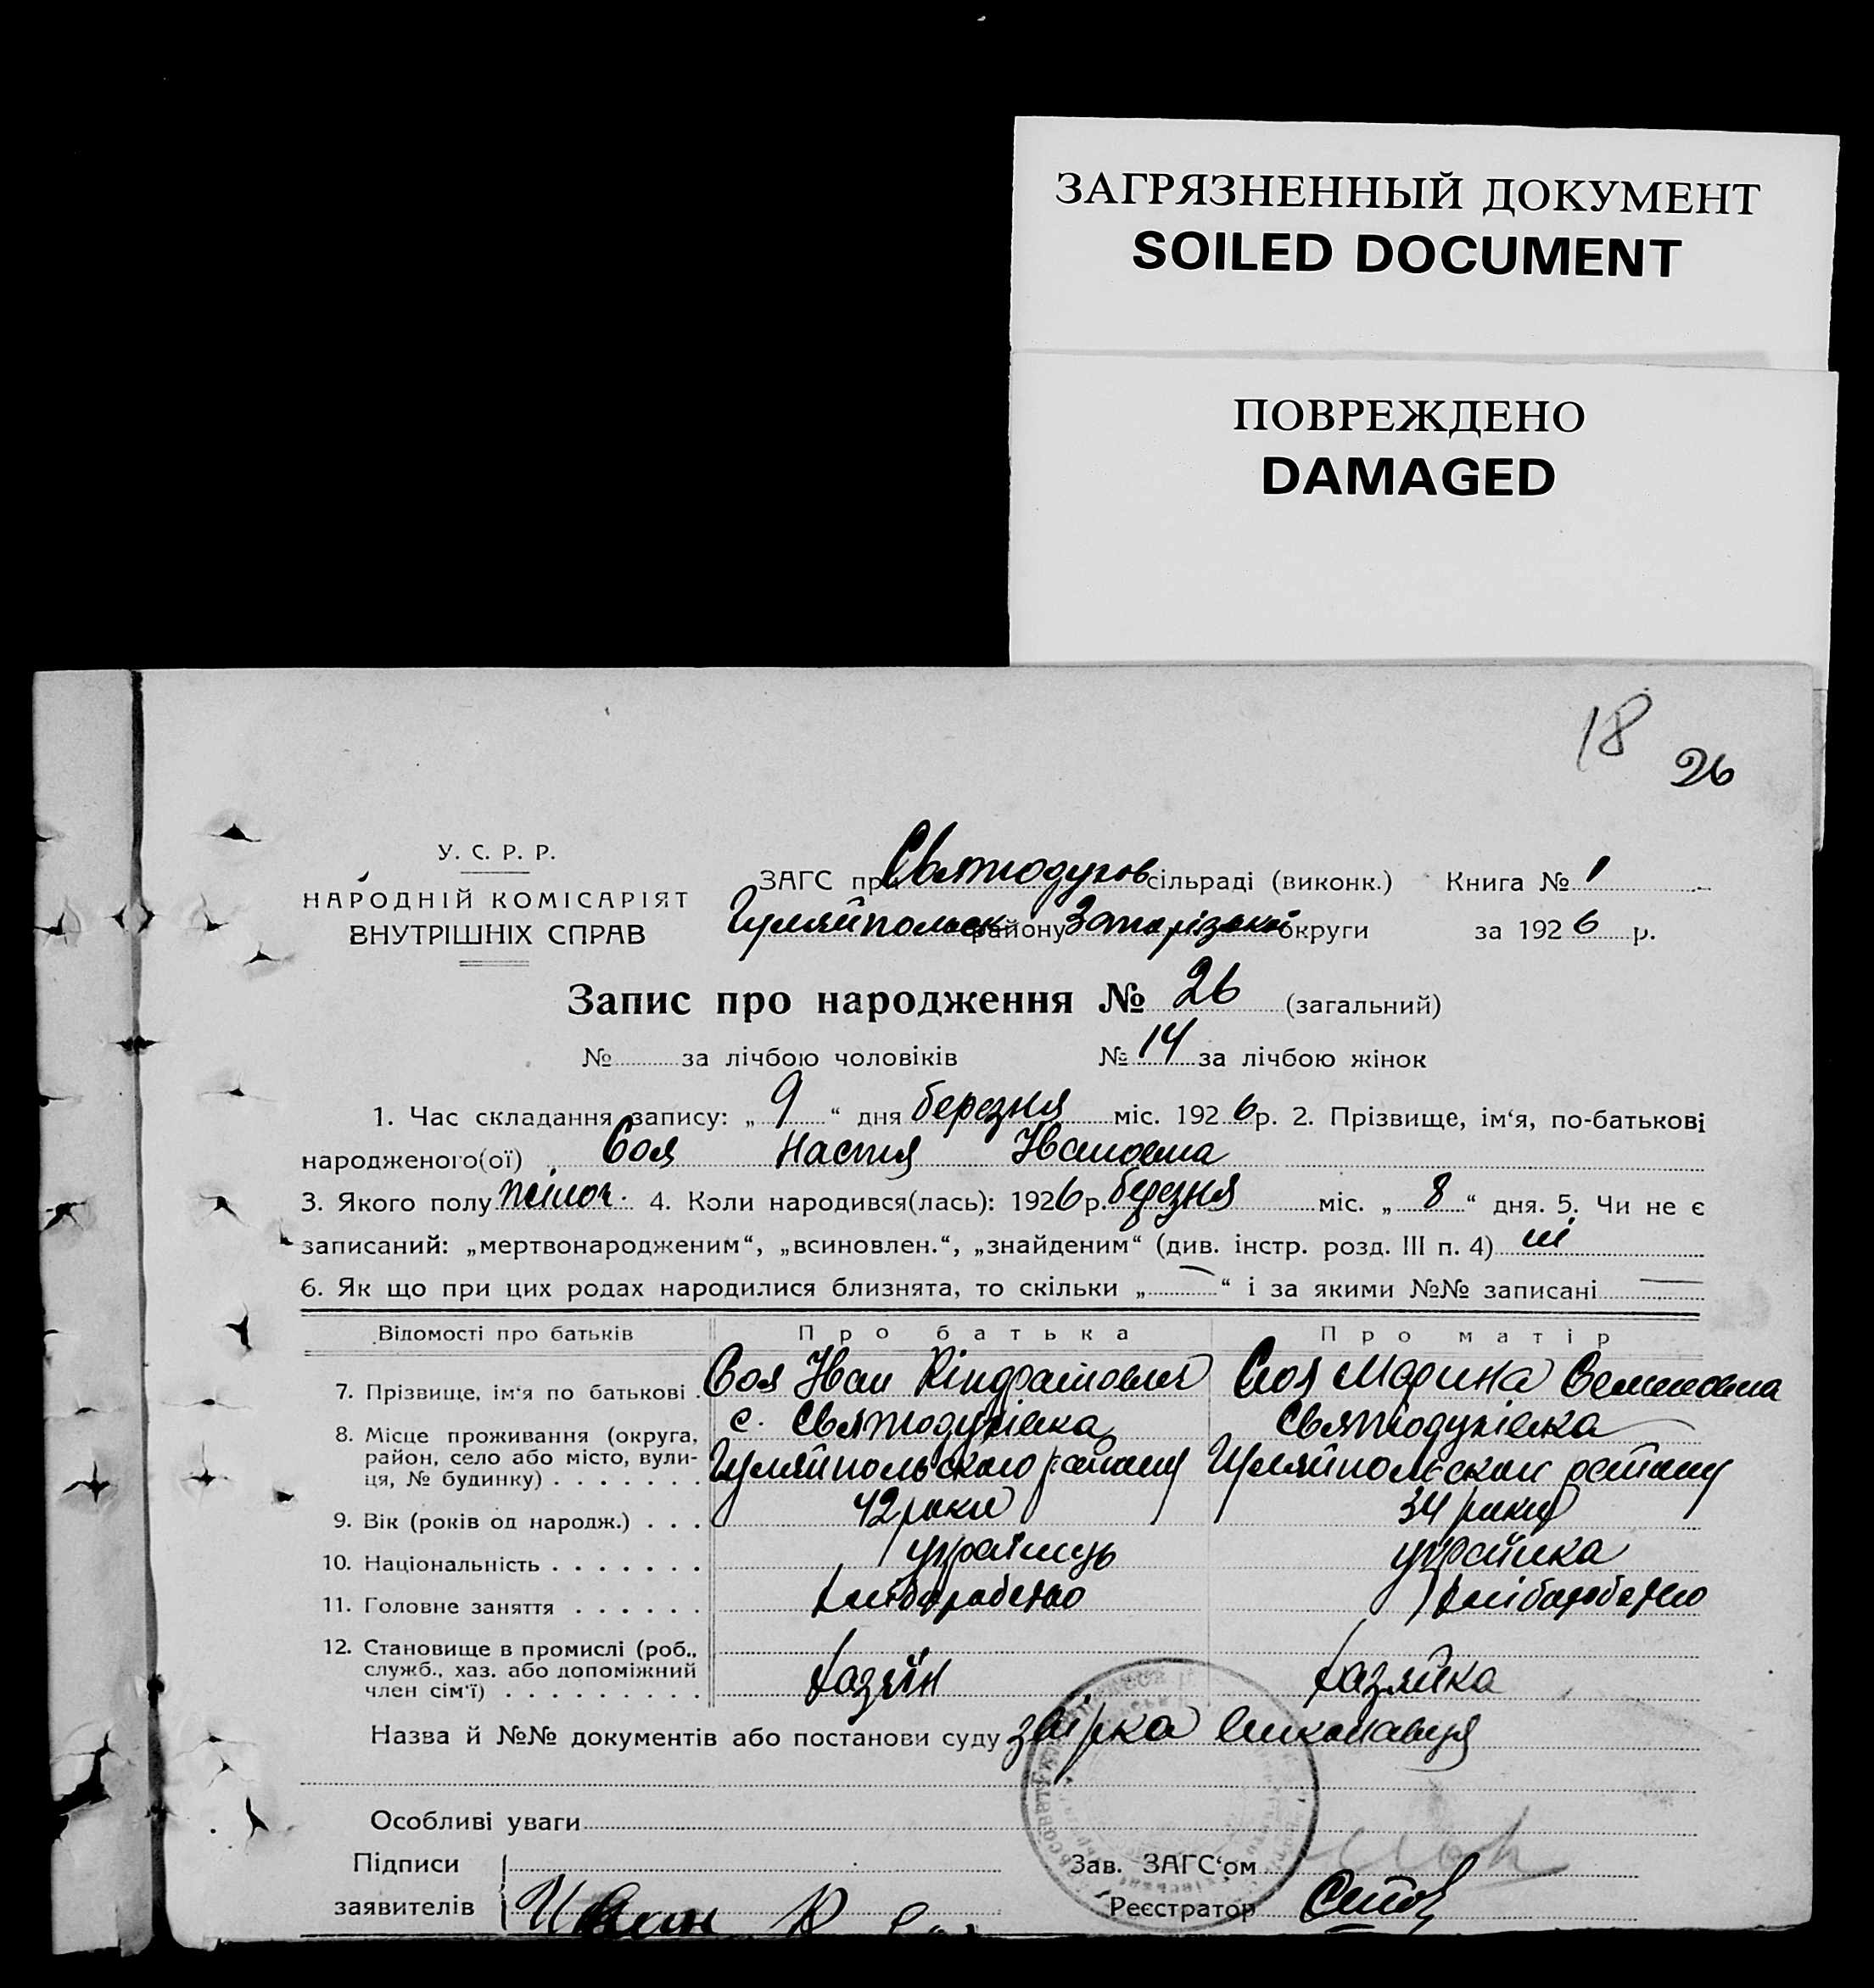 ЗАГРЯЗНЕННЫЙ ДОКУМЕНТ
SOILED DOCUMENT
ПОВРЕЖДЕНО
DAMAGED
18
26
У. С. Р. Р.
НАРОДНІЙ КОМІСАРІЯТ
ВНУТРІШНІХ СПРАВ
ЗАГС при Святодухов сільраді (виконк.) Книга № 1
Гуляйпольськ району Запорізької округи за 1926 р.
Запис про народження № 26 (загальний)
№ за лічбою чоловіків № 14 за лічбою жінок
1. Час складання запису: „ 9 “ дня березня міс. 1926 р. 2. Прізвище, ім‘я, по-батькові
народженого(ої) Соя Настя Івановна
3. Якого полу жіноч. 4. Коли народився(лась): 1926 р. березня міс. „ 8 “ дня. 5. Чи не є
записаний: „мертвонародженим“, „всиновлен.“, „знайденим“ (див. інстр. розд. III п. 4) ні
6. Як що при цих родах народилися близнята, то скільки „ — “ і за якими №№ записані —
Відомості про батьків Про батька Про матір
7. Прізвище, ім‘я по батькові . Соя Іван Кіндратович Соя Марина Семеновна
8. Місце проживання (округа, район, село або місто, вули-ця, № будинку) . . . . . . . с. Святодухівка Гуляйпольського району Святодухівка Гуляйпольськаи району
9. Вік (років од народж.) . . . 42 роки 34 роки
10. Національність . . . . . . . українець українка
11. Головне заняття . . . . . . хліборобство хліборобство
12. Становище в промислі (роб., служб., хаз. або допоміжний член сім‘ї) . . . . . . . . . хазяїн хазяйка
Назва й №№ документів або постанови суду звірка виконавця
Особливі уваги
Підписи
заявителів Иван К Соя
Зав. ЗАГС‘ом
Реєстратор